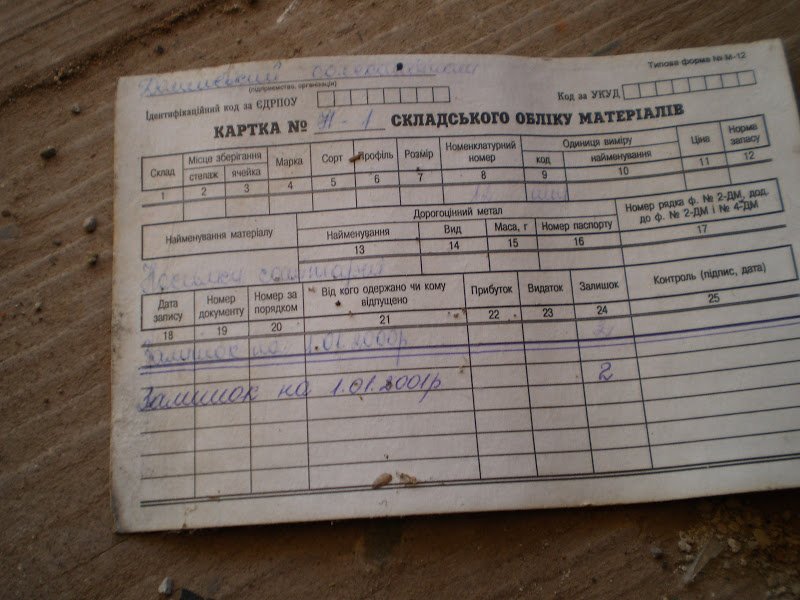 Типова форма № М-12
(підприємство, організація)
Ідентифікаційний код за ЄДРПОУ
Код за УКУД
КАРТКА № 71-1 СКЛАДСЬКОГО ОБЛІКУ МАТЕРІАЛІВ
Склад Місце зберігання Марка Сорт Профіль Розмір Номенклатурний номер Одиниця виміру Ціна Норма запасу
стелаж ячейка код найменування
1 2 3 4 5 6 7 8 9 10 11 12
Найменування матеріалу Дорогоцінний метал Номер рядка ф. № 2-ДМ, дод. до ф. № 2-ДМ і № 4-ДМ
Найменування Вид Маса, г Номер паспорту
13 14 15 16 17
Дата запису Номер документу Номер за порядком Від кого одержано чи кому відпущено Прибуток Видаток Залишок Контроль (підпис, дата)
18 19 20 21 22 23 24 25
Залишок на 1.01.2000р 2
Залишок на 1.01.2001р 2